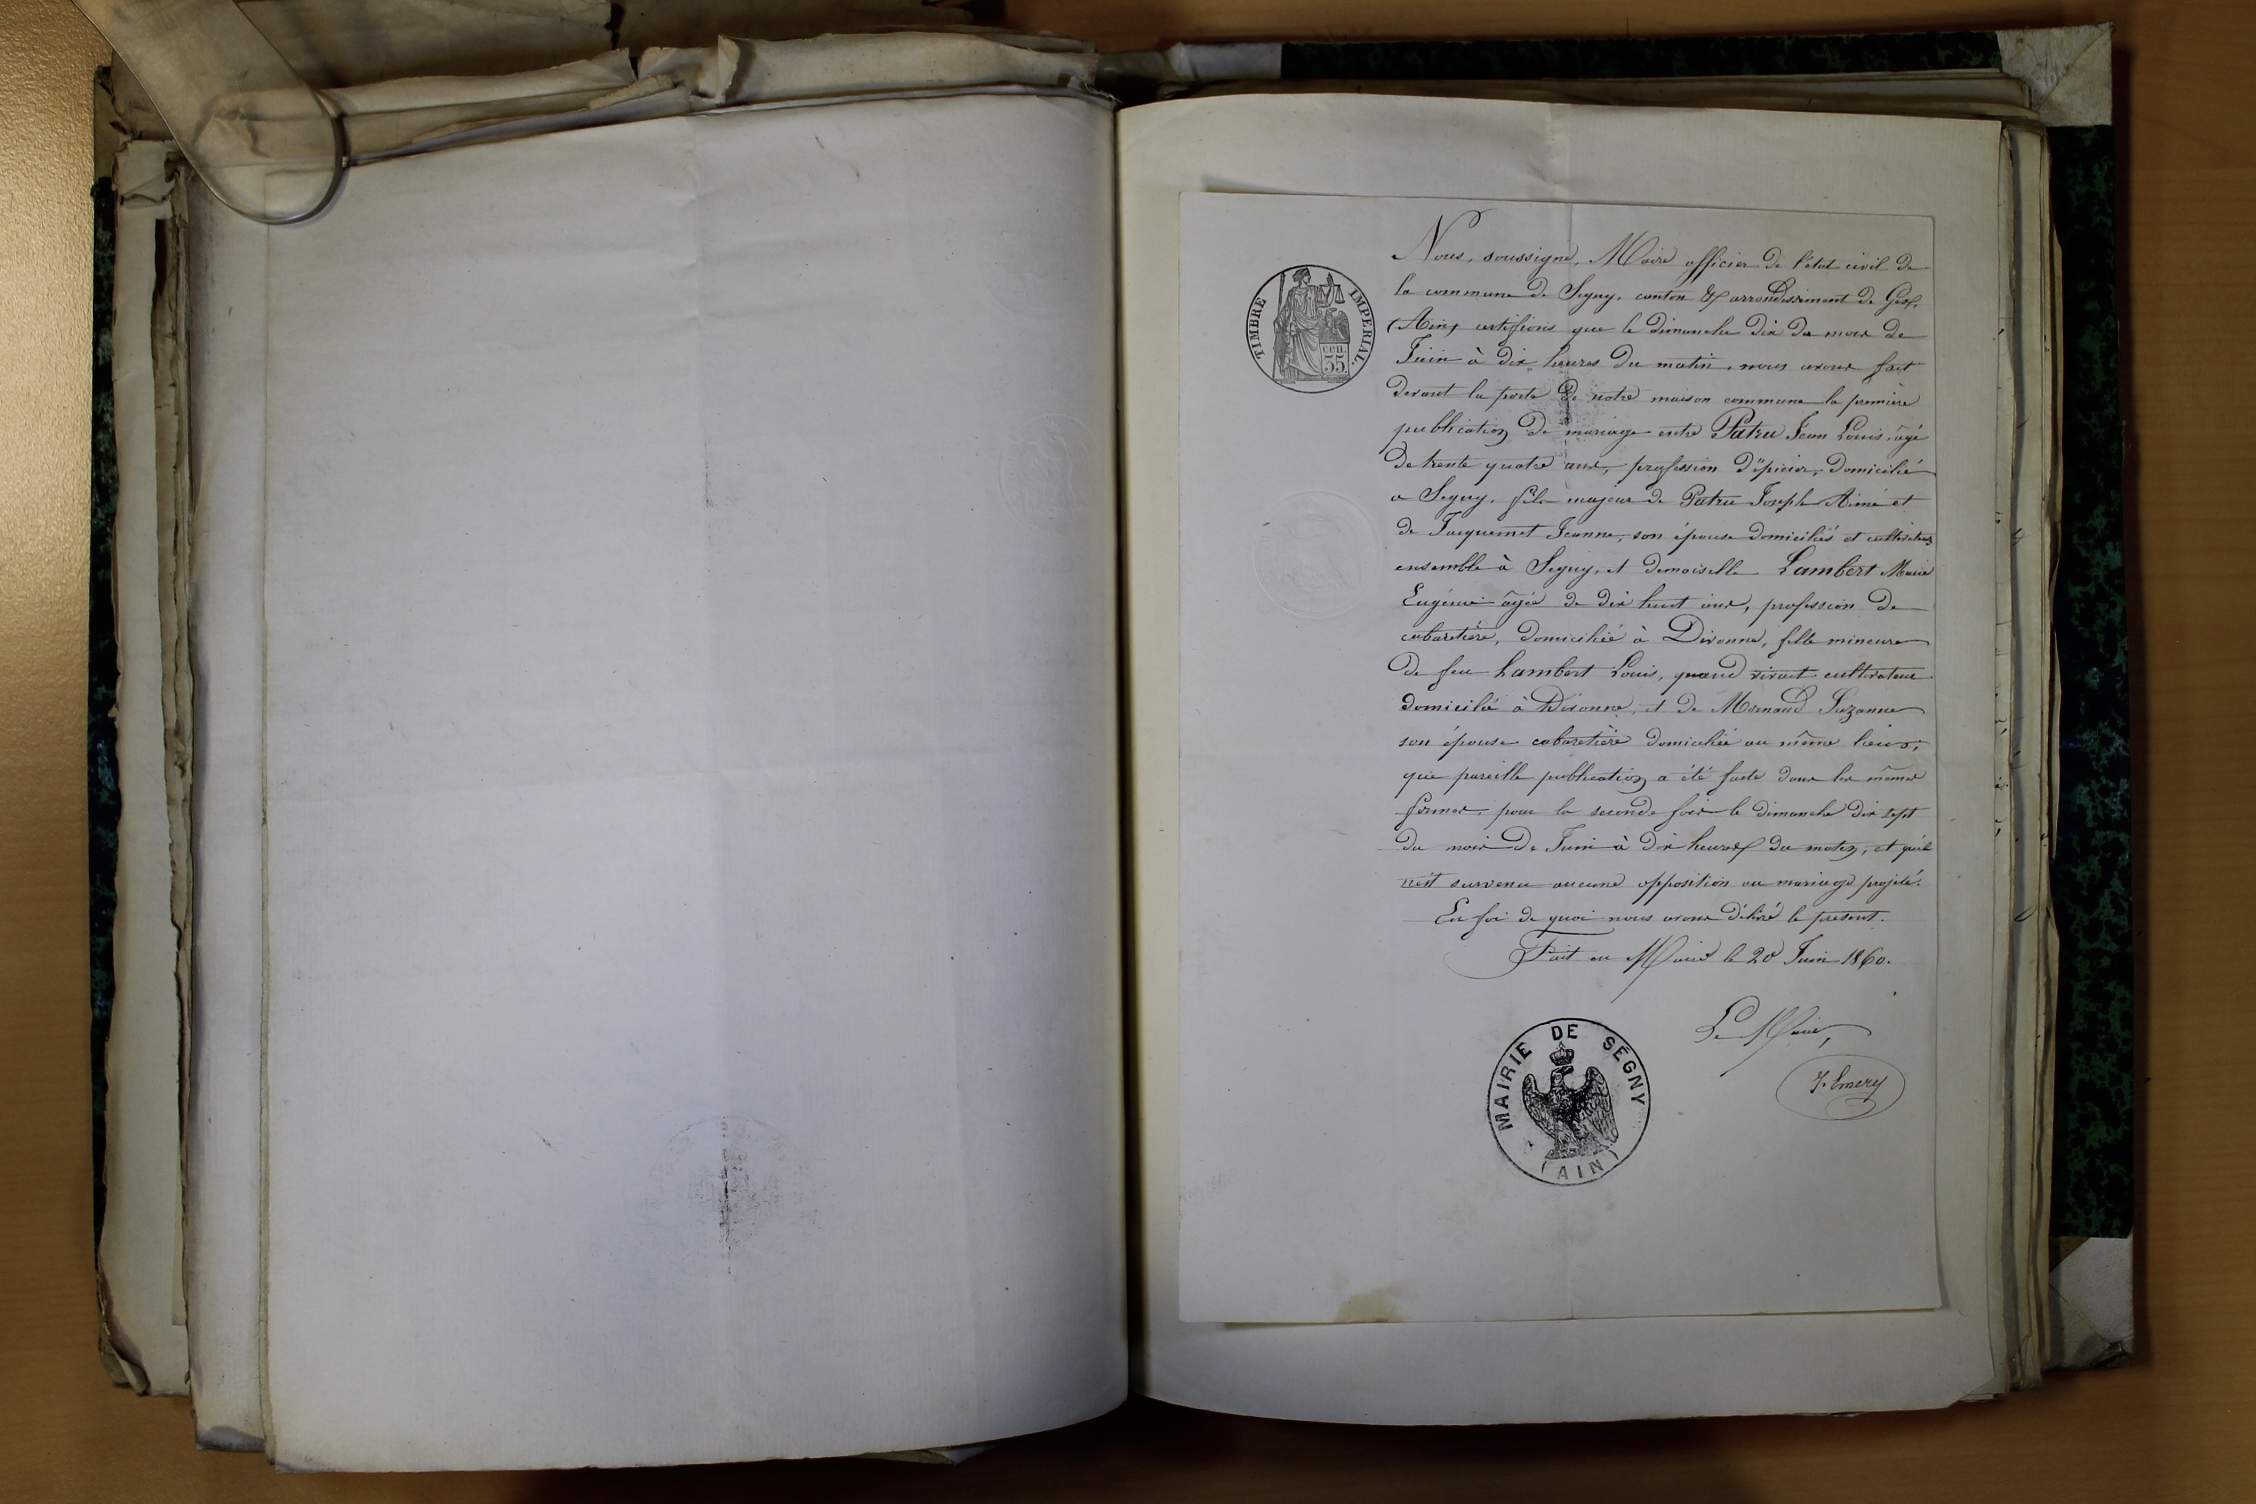 TIMBRE IMPERIAL.
CEN. 35.
Nous, soussigné, Maire officier de l'état civil de
la commune de Segny, canton & arrondissement de Gex,
(Ain) certifions que le dimanche dix du mois de
Juin à dix heures du matin, nous avons fait
devant la porte de notre maison commune la première
publication de mariage entre Patru Jean Louis âgé
de trente quatre ans, profession d'épicier, domicilié
a Segny, fils majeur de Patru Joseph Aimé et
de Jacquemet Jeanne, son épouse domiciliés et cultivateurs
ensemble à Segny, et demoiselle Lambert Marie
Eugénie âgée de dix huit ans, profession de
cabaretière, domiciliée à Divonne, fille mineure
de feu Lambert Louis, quand vivait cultivateur
domicilié à Divonne, et de Suzanne
son épouse cabaretière domiciliée au même lieu,
que pareille publication a été faite dans les mêmes
formes, pour la seconde fois le dimanche dix sept
du mois de Juin à dix heures du matin, et qu'il
n'est survenu aucune opposition au mariage projeté.
En foi de quoi nous avons délivré le présent.
Fait en Mairie le 20 Juin 1860.
Le Maire,
J. Emery
MAIRIE DE SÉGNY
(AIN)